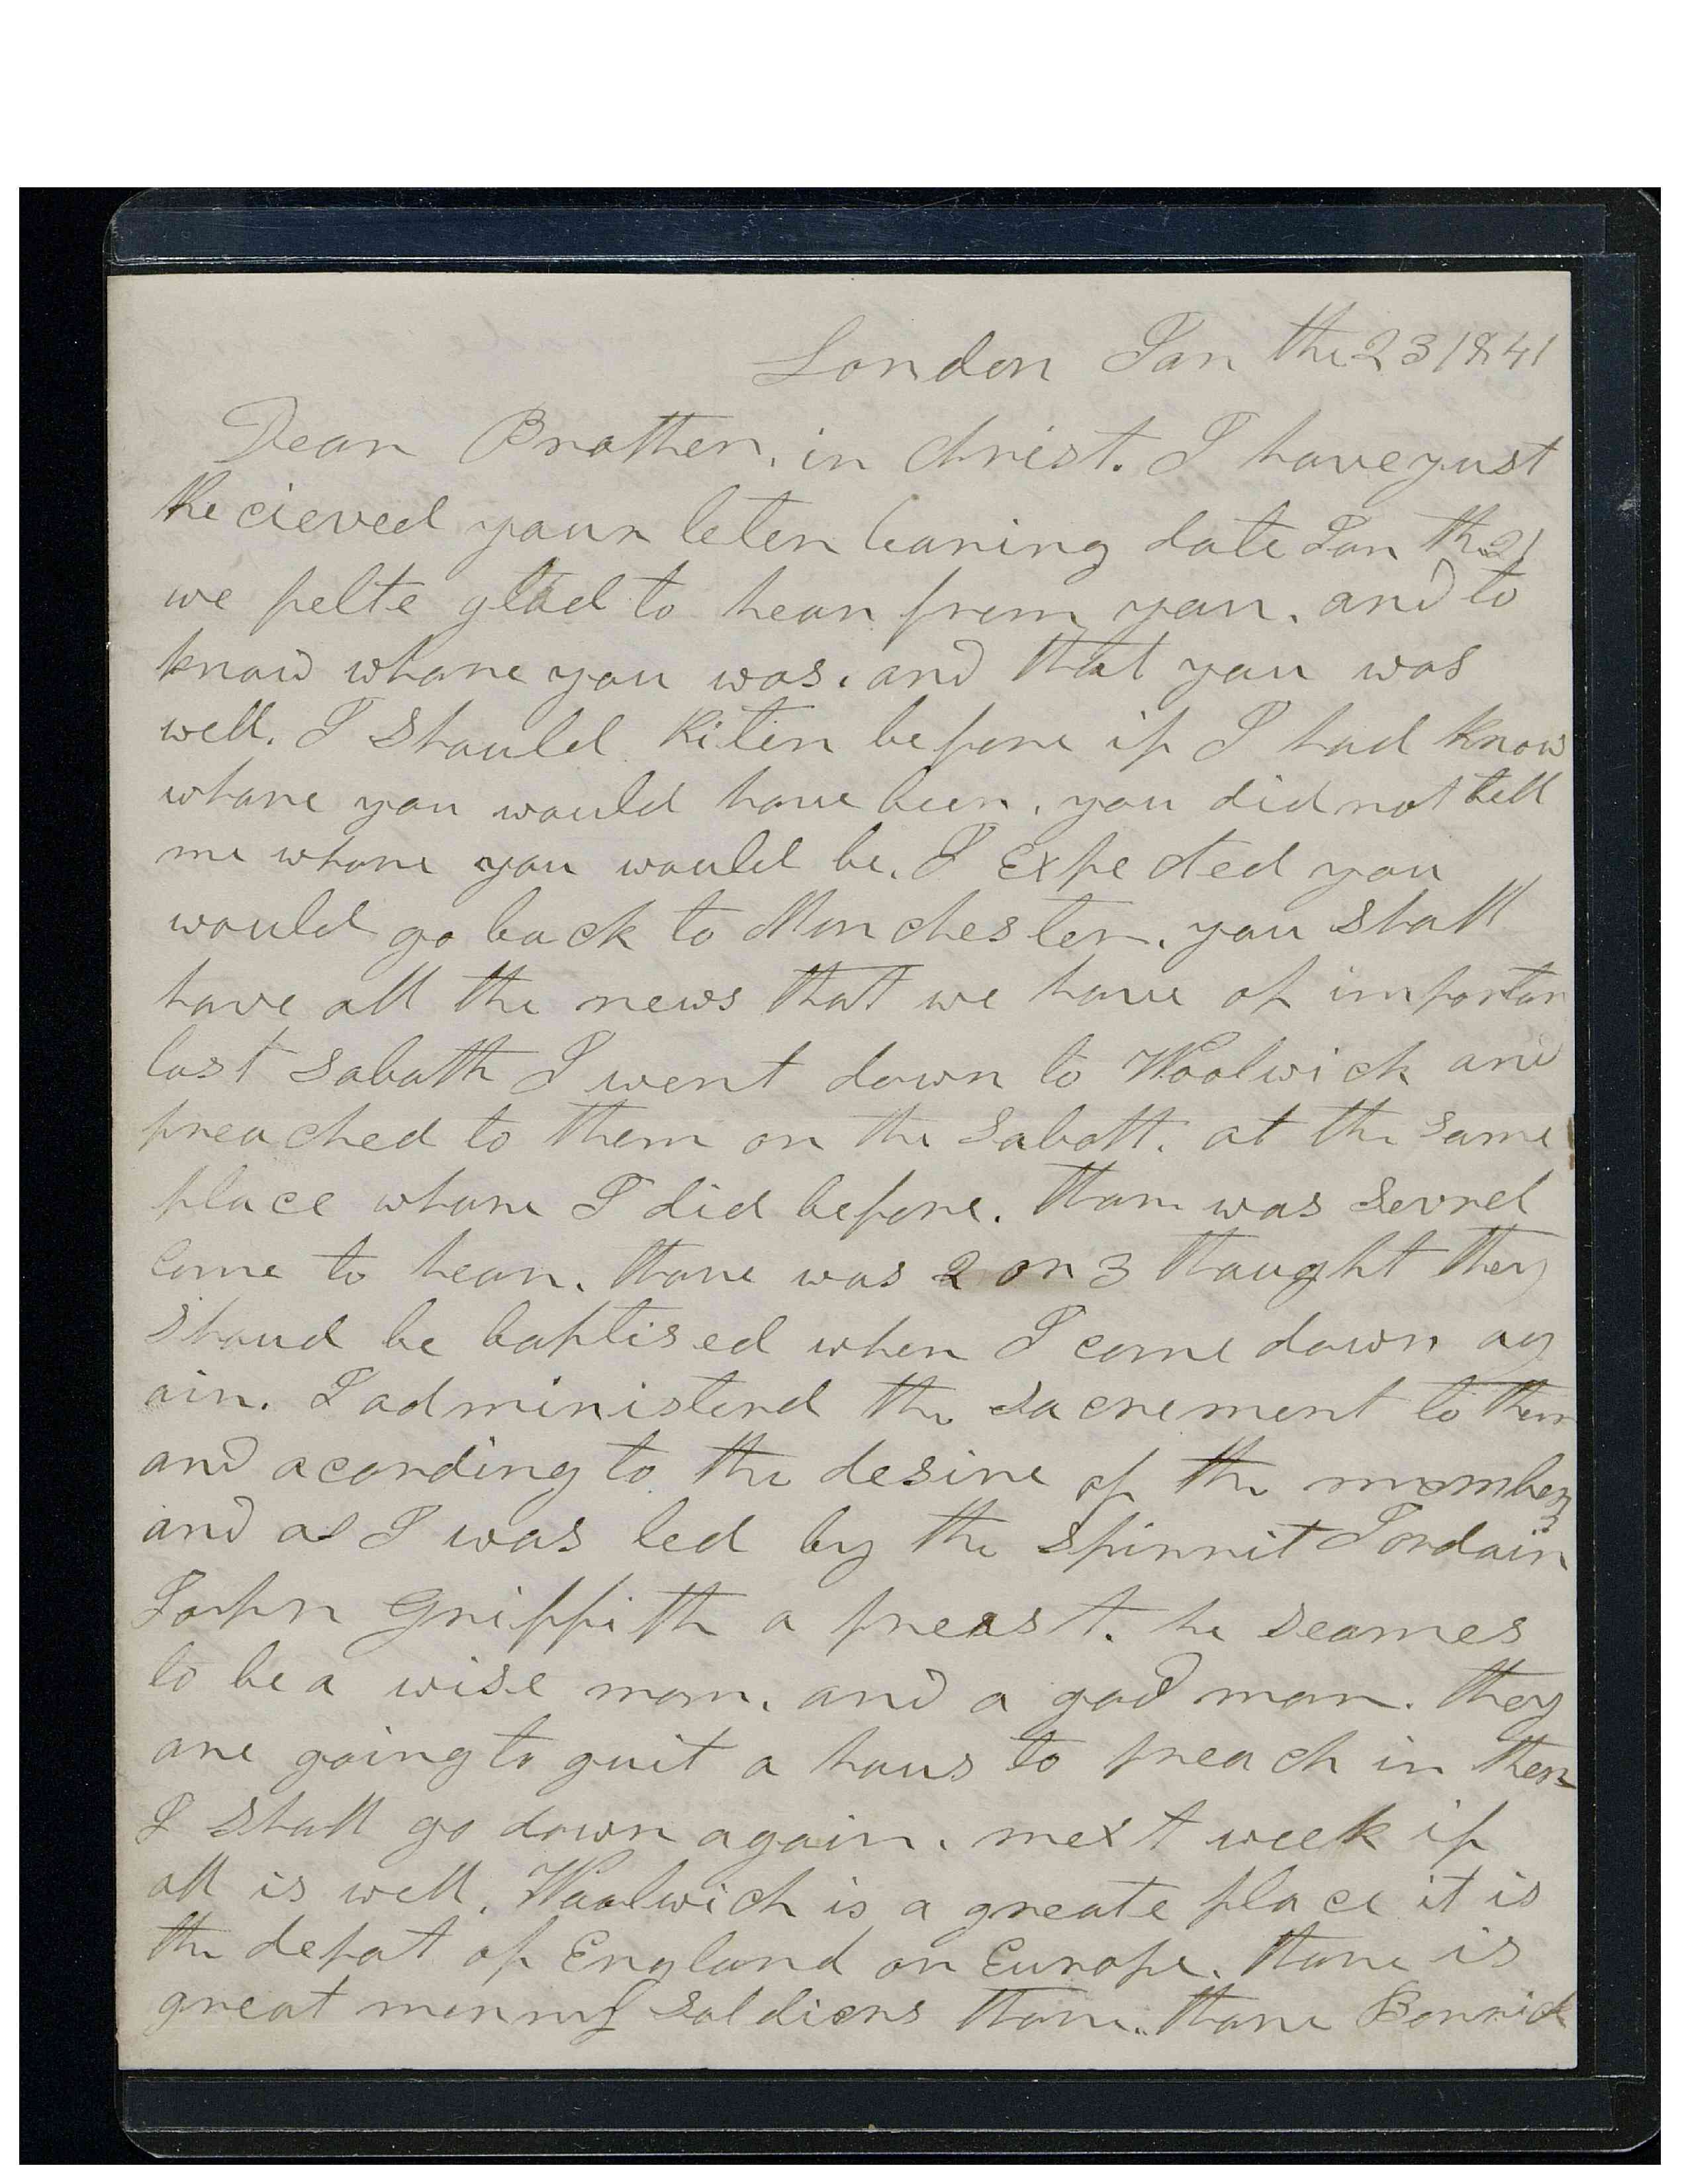 London Jan the 23 1841
Dear Brother. in christ. I have yust
Recieved your leter baring date Jan th 21
we felte glad to hear from you. and to
know whare you was. and that you was
well. I should Riten before if I had know
whare you would have been. you did not tell
me whare you would be. I Expected you
would go back to Manchester. you shall
have all the news that we have of importan
last Sabath I went down to Woolwich and
preached to them on the Sabath. at the same
place whare I did before. thare was sevrel
come to hear. thare was 2 or 3 thaught they
shoud be baptised when I come down ag
ain. I administerd the sacrement to them
and acording to the desire of the members
and as I was led by the spirrit I ordain
John Griffith a preast. he seames
to be a wise man. and a god man. they
are going to guit a hous to preach in then
I shall go down again. next week if
all is well. Woolwich is a greate place it is
the depot of England or Europe. thare is
great menny soldiers thare. thare Barrick